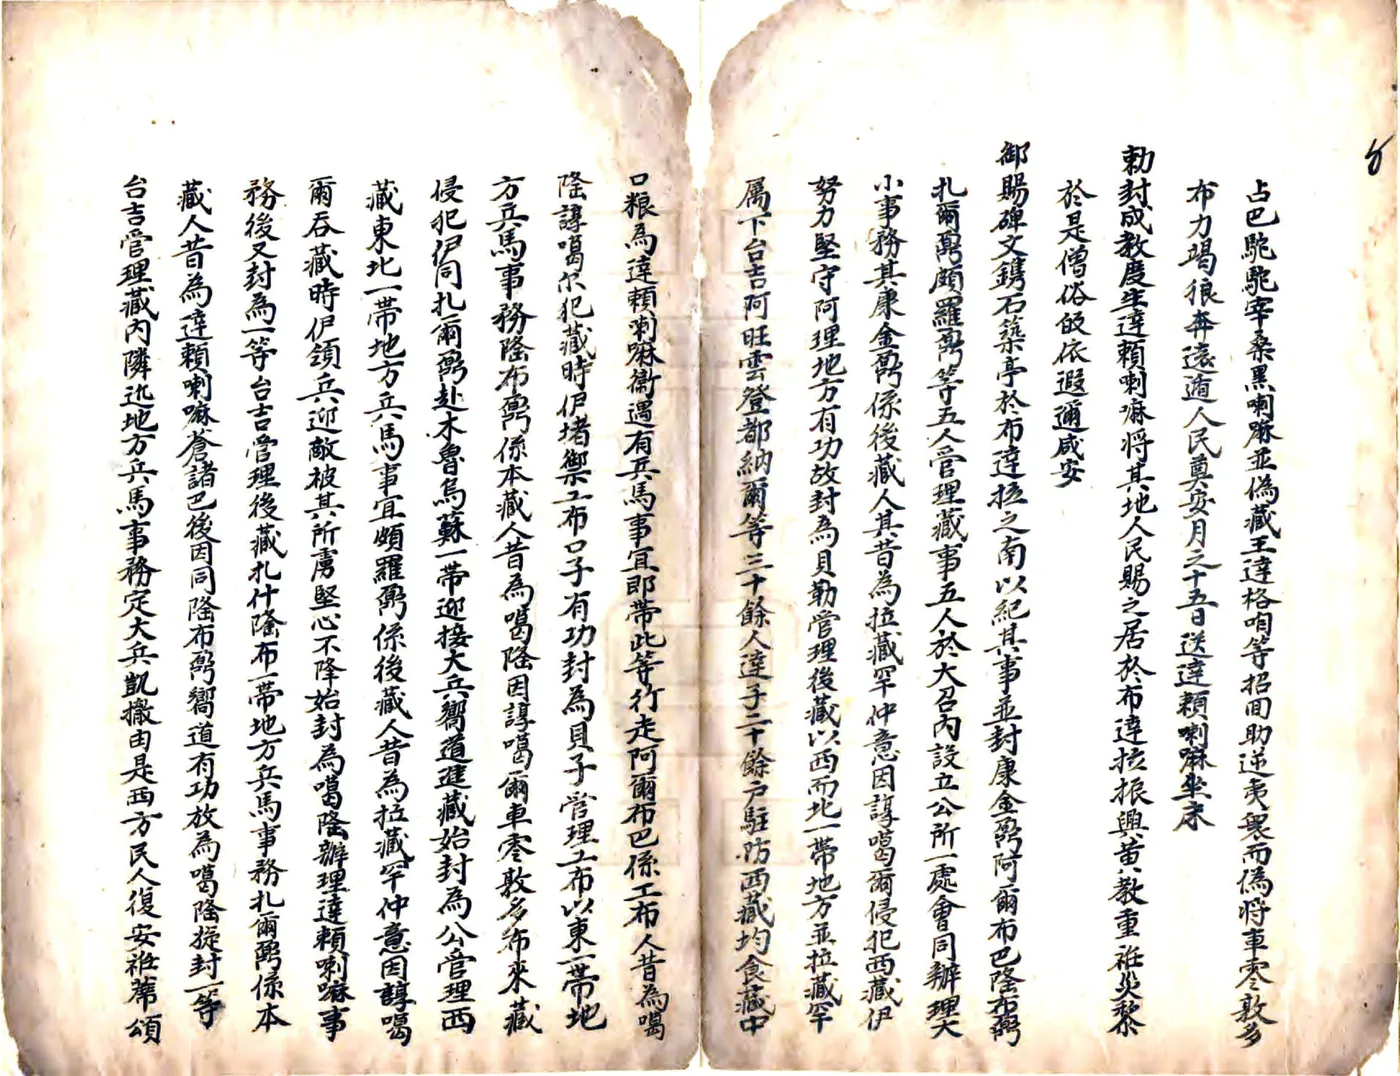 占巴駝駝宰桑黑喇嘛並偽藏王達格咱等招回助逆夷眾而偽將車零敦多
布力竭狼奔遠遁人民奠安月之十五日送達賴喇嘛坐床
勅封成教度生達賴喇嘛將其地人民賜之居於布達拉振興黄教重祇災黎
於是僧俗皈依遐邇咸安
御賜碑文鐫石築亭於布達拉之南以紀其事並封康金鼐阿爾布巴隆布鼐
扎爾鼐頗羅鼐等五人管理藏事五人於大召內設立公所一處會同辦理大
小事務其康金鼐係後藏人其昔為拉藏罕仲意因諄噶爾侵犯西藏伊
努力堅守阿理地方有功故封為貝勒管理後藏以西而北一帶地方並拉藏罕
属下台吉阿旺雲登都納爾等三十餘人達子二十餘户駐防西藏均食藏中
口粮為達賴喇嘛衛遇有兵馬事宜即帶此等行走阿爾布巴係工布人昔為噶
隆諄噶尔犯藏時伊堵禦工布口子有功封為貝子管理工布以東一帶地
方兵馬事務隆布鼐係本藏人昔為噶隆因諄噶爾車零敦多布來藏
侵犯伊同扎爾鼐赴木魯烏蘇一帶迎接大兵嚮道進藏始封為公管理西
藏東北一帶地方兵馬事宜頗羅鼐係後藏人昔為拉藏罕仲意因諄噶
爾吞藏時伊領兵迎敵被其所虜堅心不降始封為噶隆辦理達賴喇嘛事
務後又封為一等台吉管理後藏扎什隆布一帶地方兵馬事務扎爾鼐係本
藏人昔為達賴喇嘛倉諸巴後因同隆布鼐嚮道有功放為噶隆旋封一等
台吉管理藏內隣近地方兵馬事務定大兵凱撤由是西方民人復安袵蓆頌